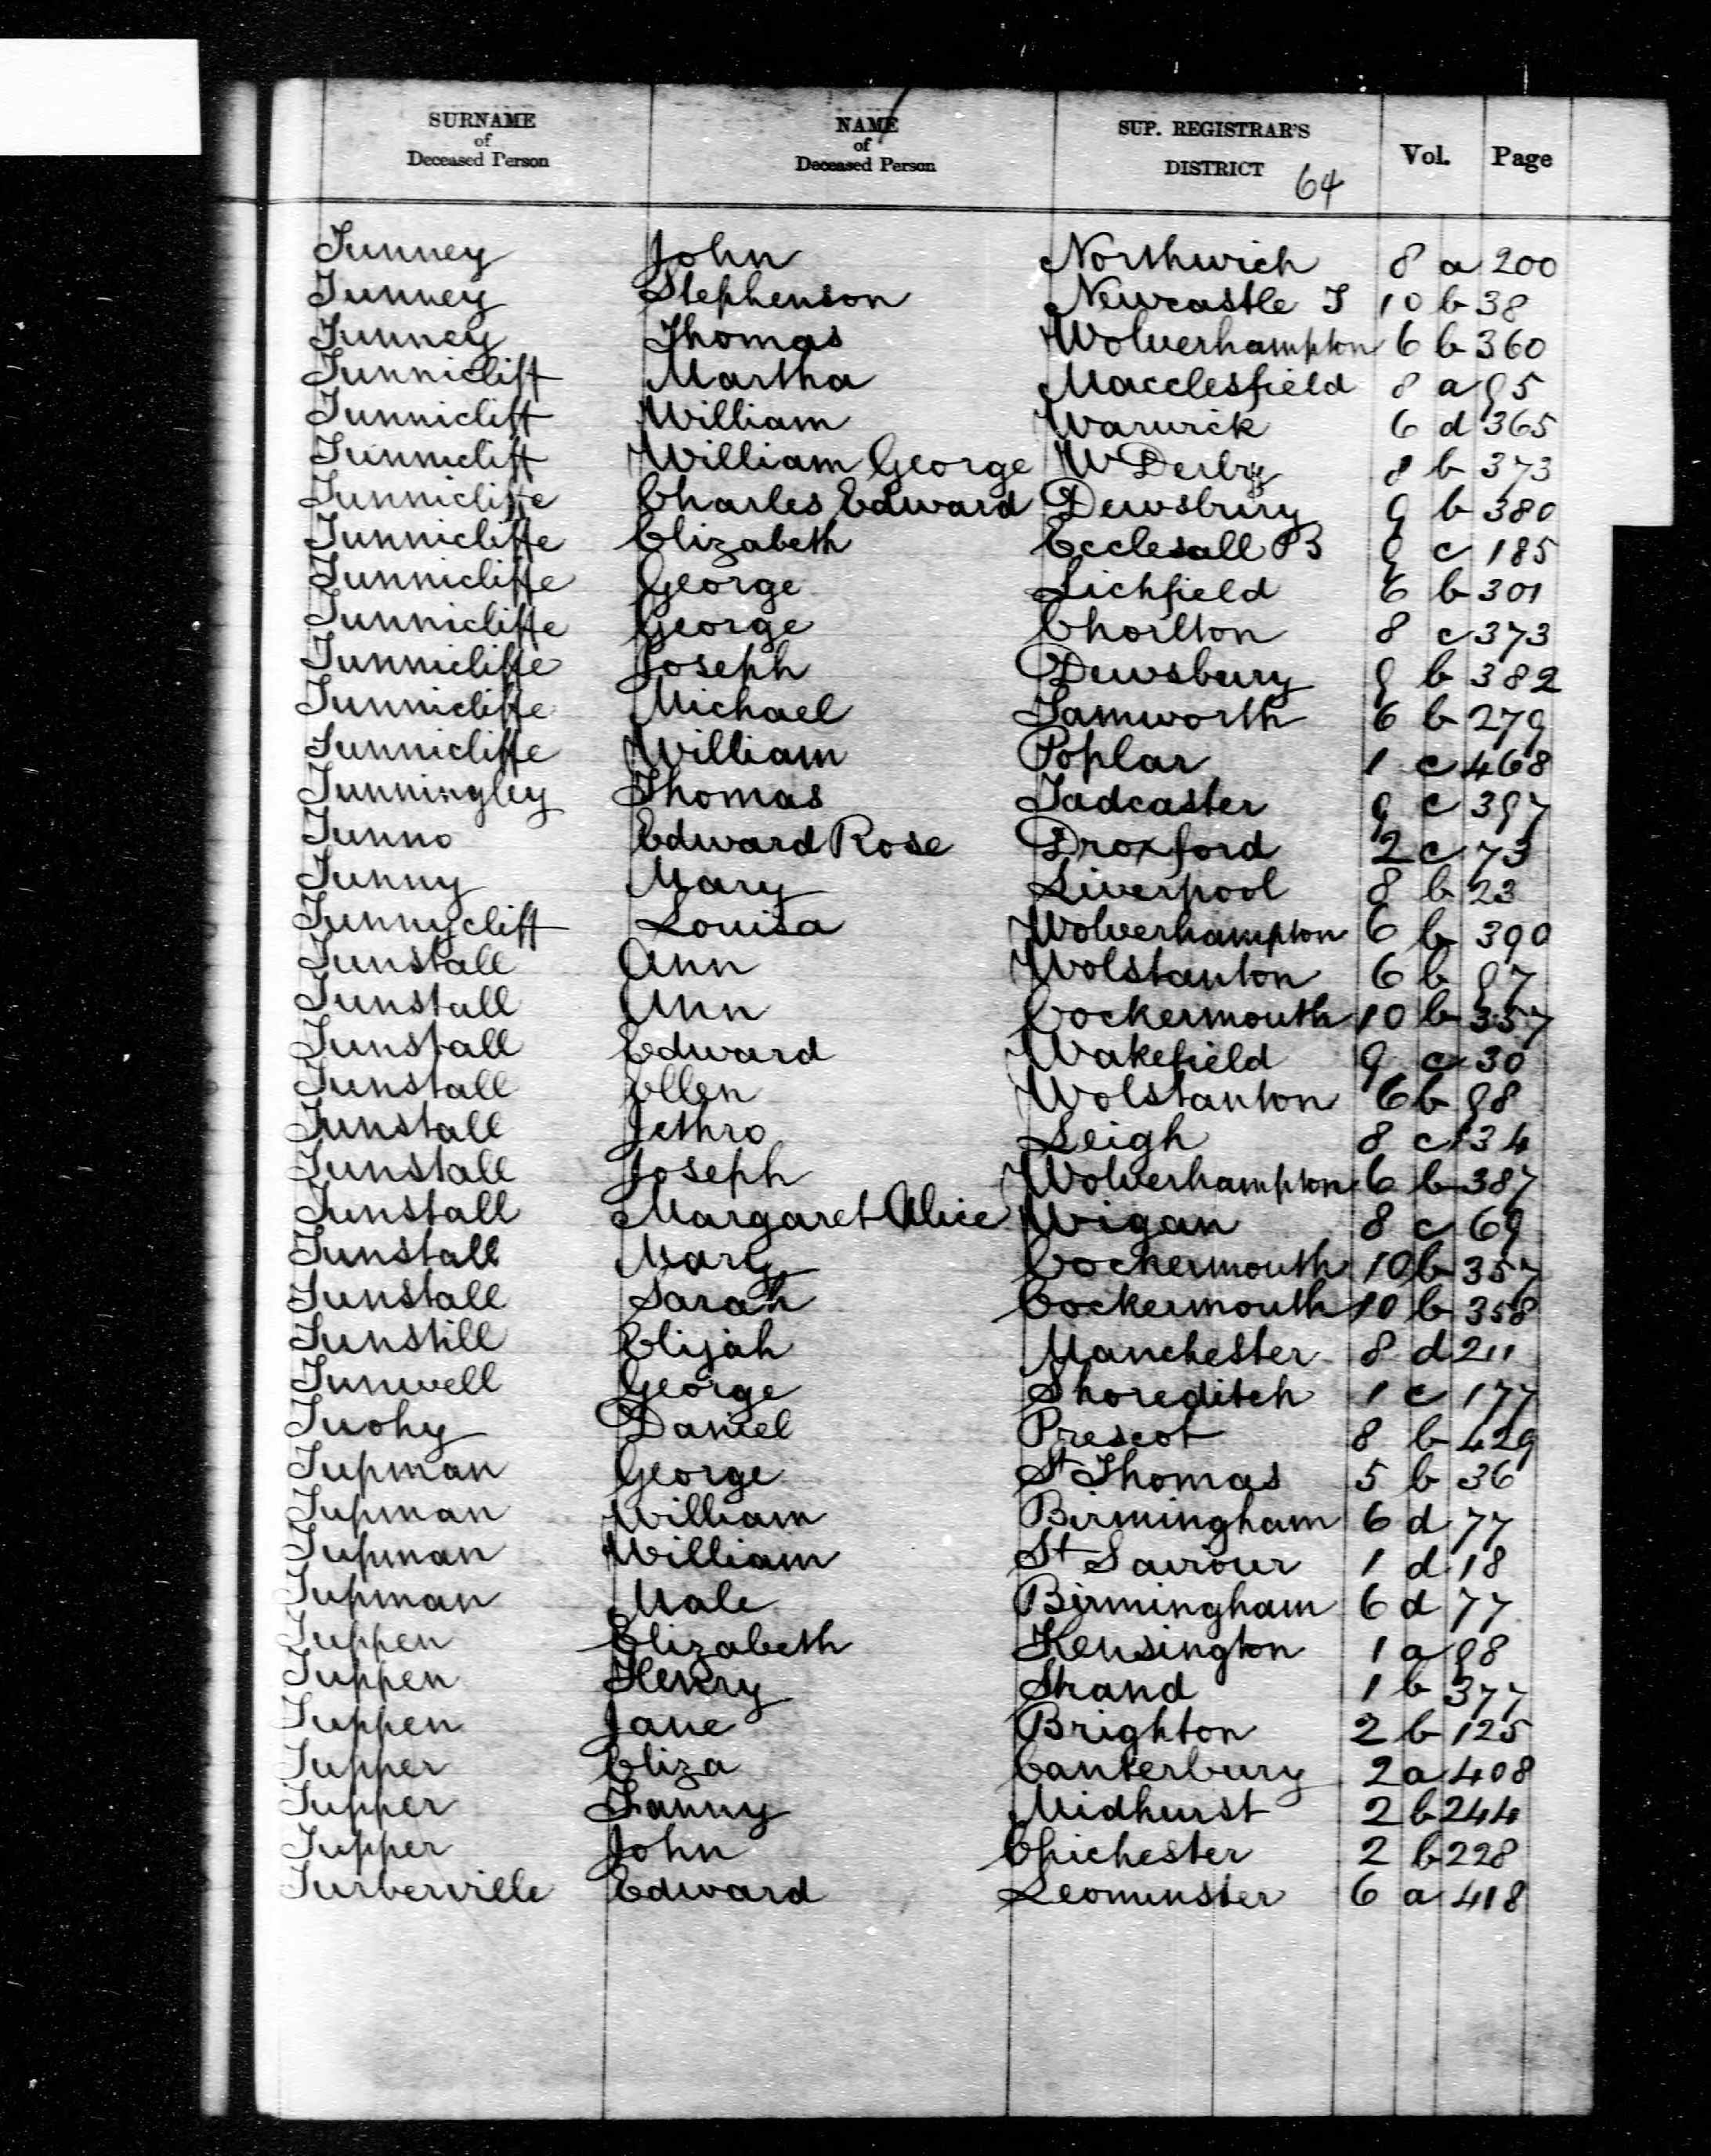 SURNAME of Deceased Person NAME of Deceased Person SUP. REGISTRAR'S DISTRICT 64 Vol. Page
Tunney John Northwich 8 a 200
Tunney Stephenson Newcastle T 10 b 38
Tunney Thomas Wolverhampton 6 b 360
Tunnicliff Martha Macclesfield 8 a 95
Tunnicliff William Warwick 6 d 365
Tunnicliff William George W Derby 8 b 373
Tunnicliffe Charles Edward Dewsbury 9 b 380
Tunnicliffe Elizabeth Ecclesall B 9 c 185
Tunnicliffe George Lichfield 6 b 301
Tunnicliffe George Chorlton 8 c 373
Tunnicliffe Joseph Dewsbury 9 b 382
Tunnicliffe Michael Tamworth 6 b 279
Tunnicliffe William Poplar 1 c 468
Tunningley Thomas Tadcaster 9 c 397
Tunno Edward Rose Droxford 2 c 73
Tunny Mary Liverpool 8 b 23
Tunnycliff Louisa Wolverhampton 6 b 390
Tunstall Ann Wolstanton 6 b 97
Tunstall Ann Cockermouth 10 b 357
Tunstall Edward Wakefield 9 c 30
Tunstall Ellen Wolstanton 6 b 98
Tunstall Jethro Leigh 8 c 134
Tunstall Joseph Wolverhampton 6 b 387
Tunstall Margaret Alice Wigan 8 c 69
Tunstall Mary Cockermouth 10 b 357
Tunstall Sarah Cockermouth 10 b 358
Tunstill Elijah Manchester 8 d 211
Tunwell George Shoreditch 1 c 177
Tuohy Daniel Prescot 8 b 429
Tupman George St Thomas 5 b 36
Tupman William Birmingham 6 d 77
Tupman William St Saviour 1 d 18
Tupman Male Birmingham 6 d 77
Tuppen Elizabeth Kensington 1 a 98
Tuppen Henry Strand 1 b 377
Tuppen Jane Brighton 2 b 125
Tupper Eliza Canterbury 2 a 408
Tupper Fanny Midhurst 2 b 244
Tupper John Chichester 2 b 228
Turberville Edward Leominster 6 a 418